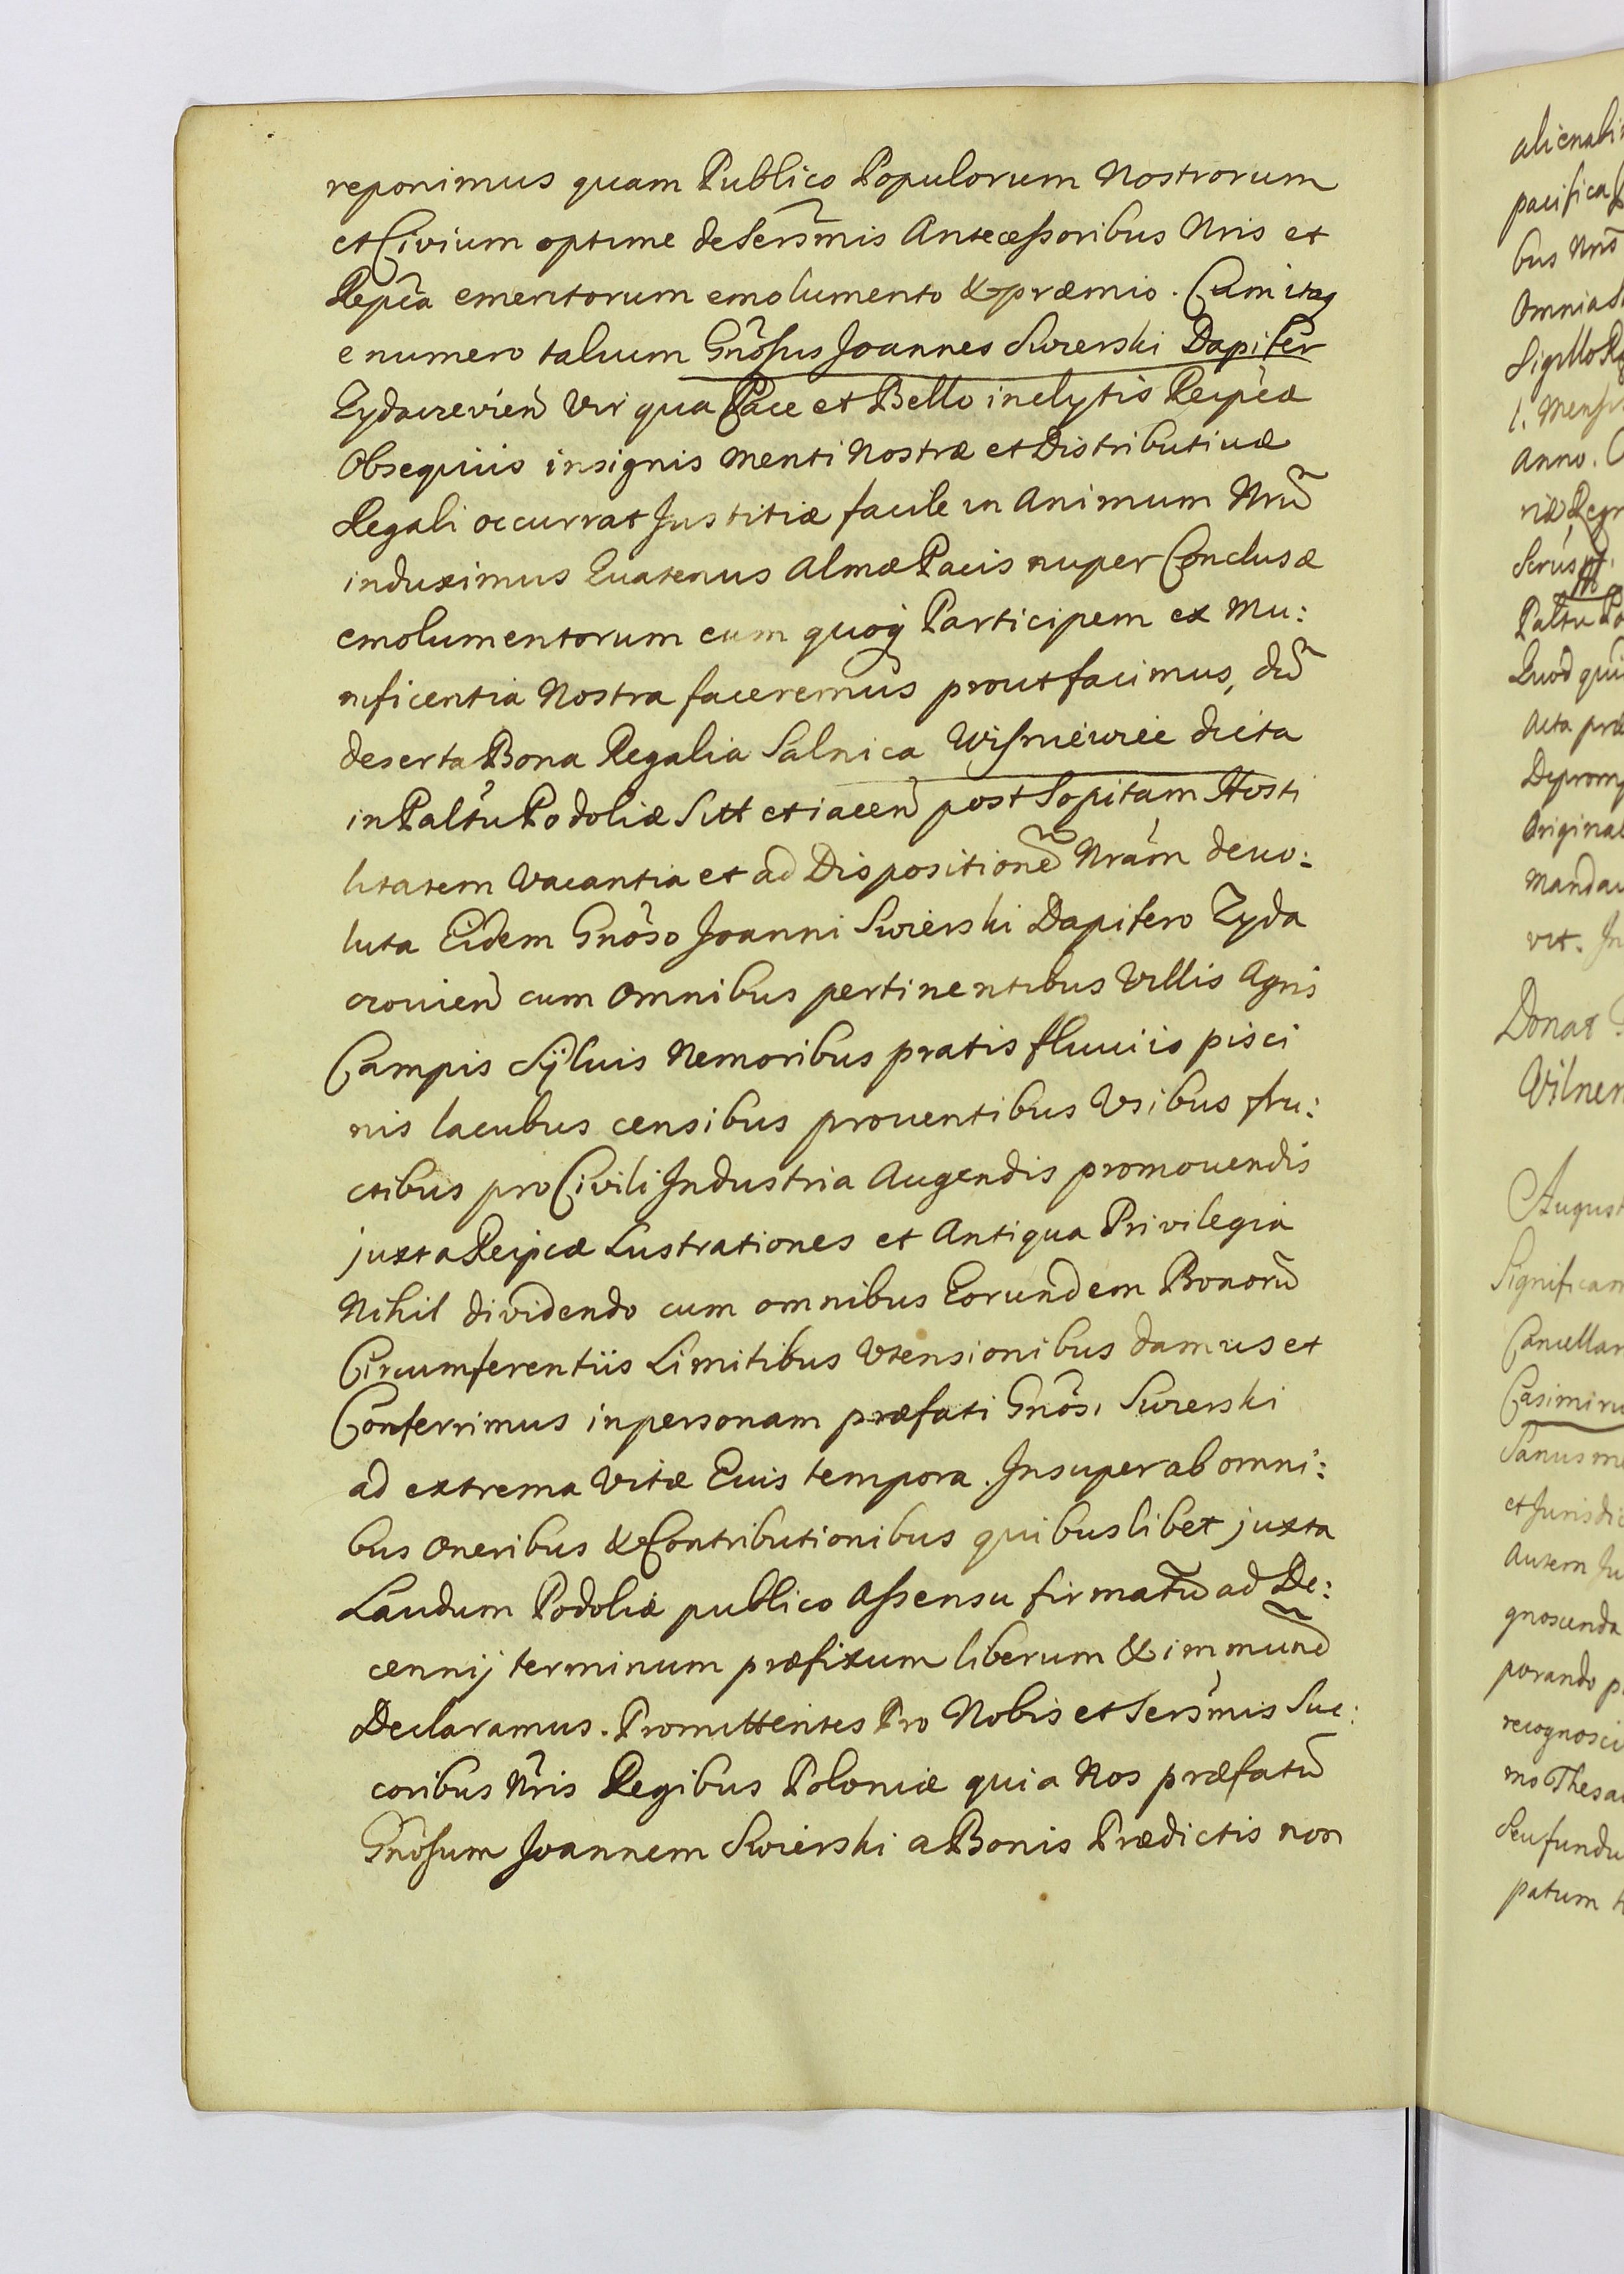 reponimus quam Publico Populorum Nostrorum
et Civium optime de Serm̃mis Antecessoribus Nris et
Repca emeritorum emolumento & præmio. Cum itaq
e numero talium Gnosus Joannes Swierski Dapifer
Zydacrevien Vir qua Pace et Bello inclytis Reipcæ
Obsequiis insignis Menti Nostræ et Distributivæ
Regali occurrat Justitiæ facile in Animum Nrũ
induximus Quatenus Almæ Pacis nuper Conclusæ
emolumentorum eum quoq Participem ex Mu:
nificentia Nostra faceremus prout facimus, dũ
deserta Bona Regalia Salnica Wisniewiec dicta
in Paltu Podoliæ Sitt et iacen post Sopitam Hosti
litatem Vacantia et ad Dispositionẽ Nram devo:
luta Eidem Gnoso Joanni Swierski Dapifero Zyda
crovien cum Omnibus pertinentibus Villis Agris
Campis Sÿluis Nemoribus pratis fluuiis pisci
nis lacubus censibus prouentibus Vsibus fru:
ctibus pro Civili Industria Augendis promouendis
juxta Reipcæ Lustrationes et Antiqua Privilegia
Nihil dividendo cum omnibus Eorundem Bonorũ
Circumferentiis Limitibus Vtensionibus damus et
Conferrimus in personam præfati Gnosi Swierski
ad extrema Vitæ Euis tempora. Insuper ab omni:
bus Oneribus & Contributionibus quibuslibet juxta
Laudum Podoliæ publico Assensu firmatũ ad De:
cennij terminum præfixum liberum & immunẽ
Declaramus. Promittentes Pro Nobis et Sersmis Suc:
coribus Nris Regibus Poloniæ quia Nos præfatũ
Gnosum Joannem Swierski a Bonis Prædictis non
pacifica
bus Nris
Omnia
Sigillo
Anno.
Paltu
Quod
Acta
Originale
vit.
Donat
August
Significam
Casimiru
et Jurisdic
Autem
gnoscenda
porando
recognosci
patum